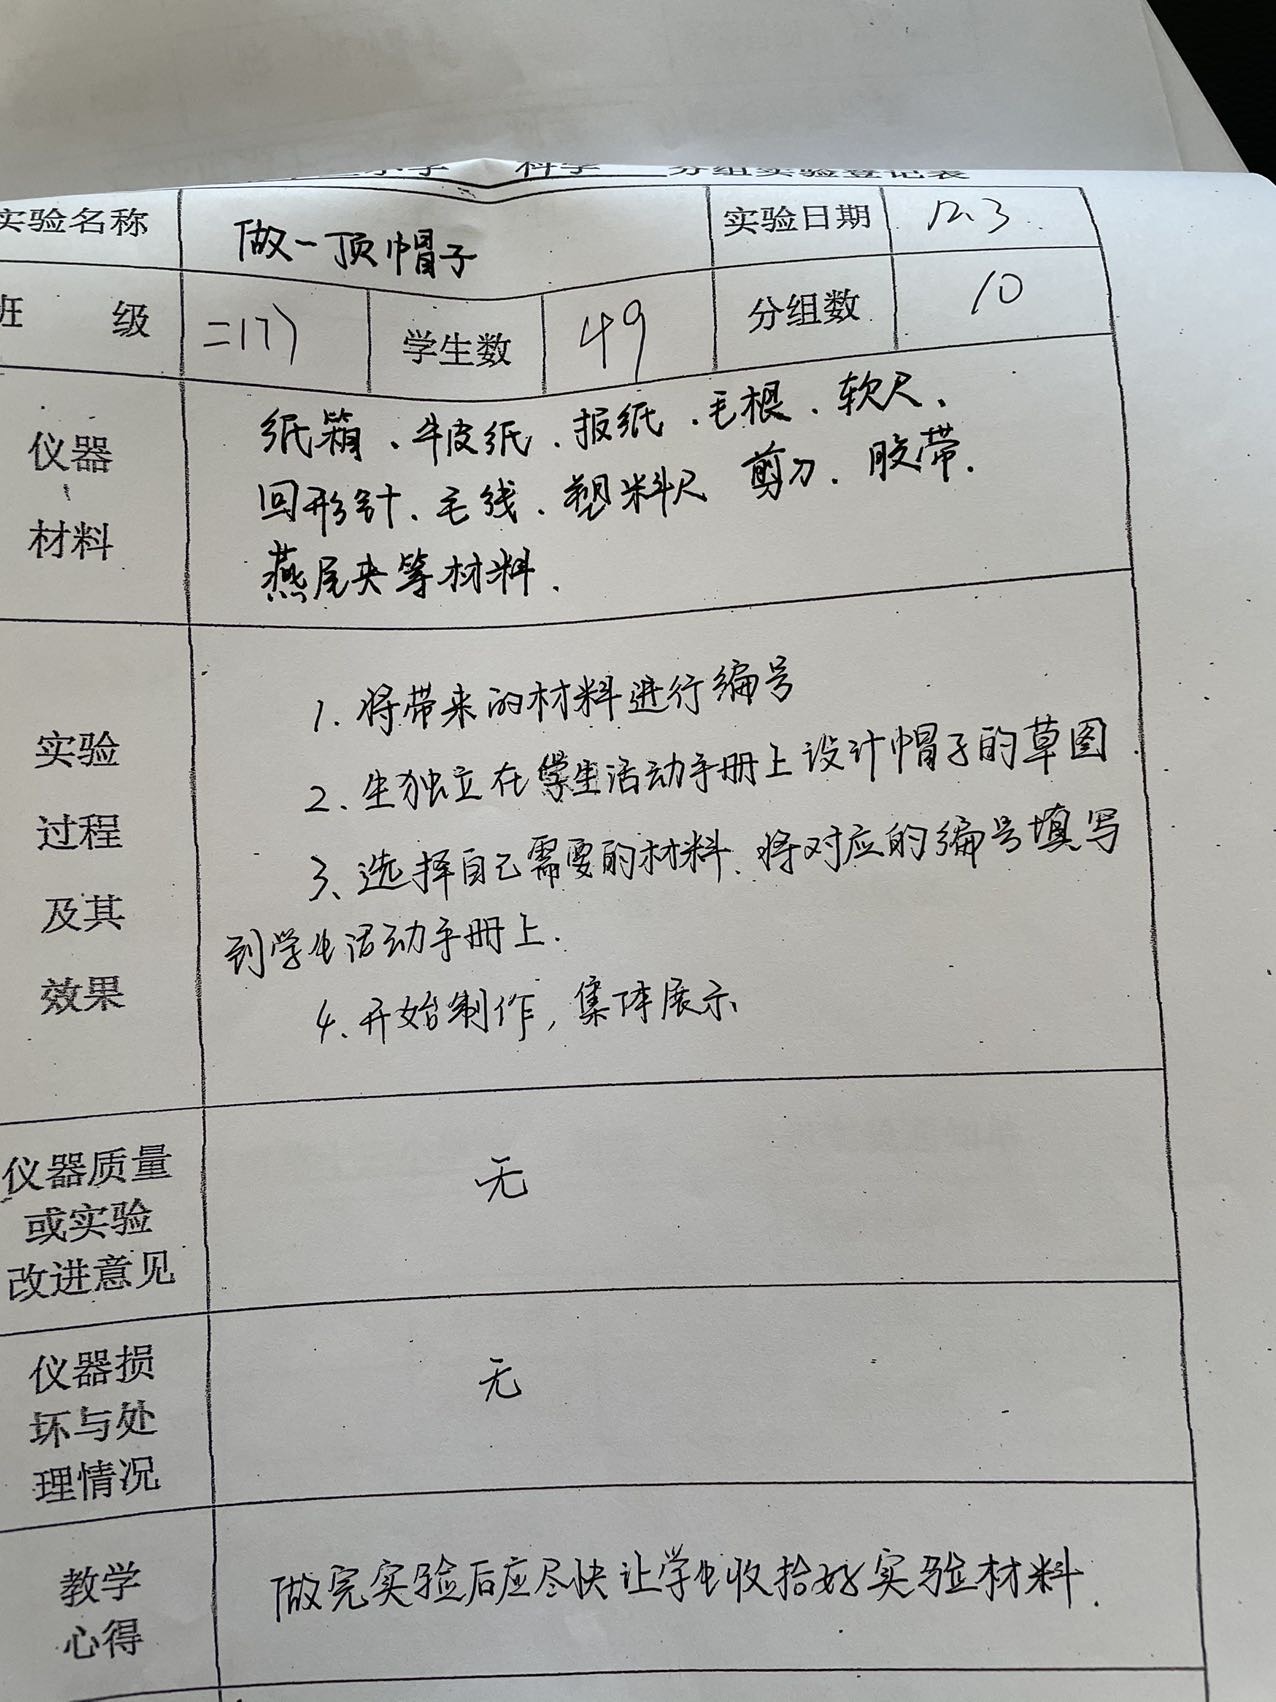 小学 科学 分组实验登记表
实验名称 做一顶帽子 实验日期 12.3
班 级 二17) 学生数 49 分组数 10
仪器 材料
纸箱、牛皮纸、报纸、毛根、软尺、
回形针、毛线、塑料尺 剪刀、胶带.
燕尾夹等材料.
实验 过程 及其 效果
1. 将带来的材料进行编号
2、生独立在学生活动手册上设计帽子的草图.
3、选择自己需要的材料、将对应的编号填写
到学生活动手册上.
4、开始制作, 集体展示
仪器质量
或实验
改进意见
无
仪器损
坏与处
理情况
无
教学
心得
做完实验后应尽快让学生收拾好实验材料.